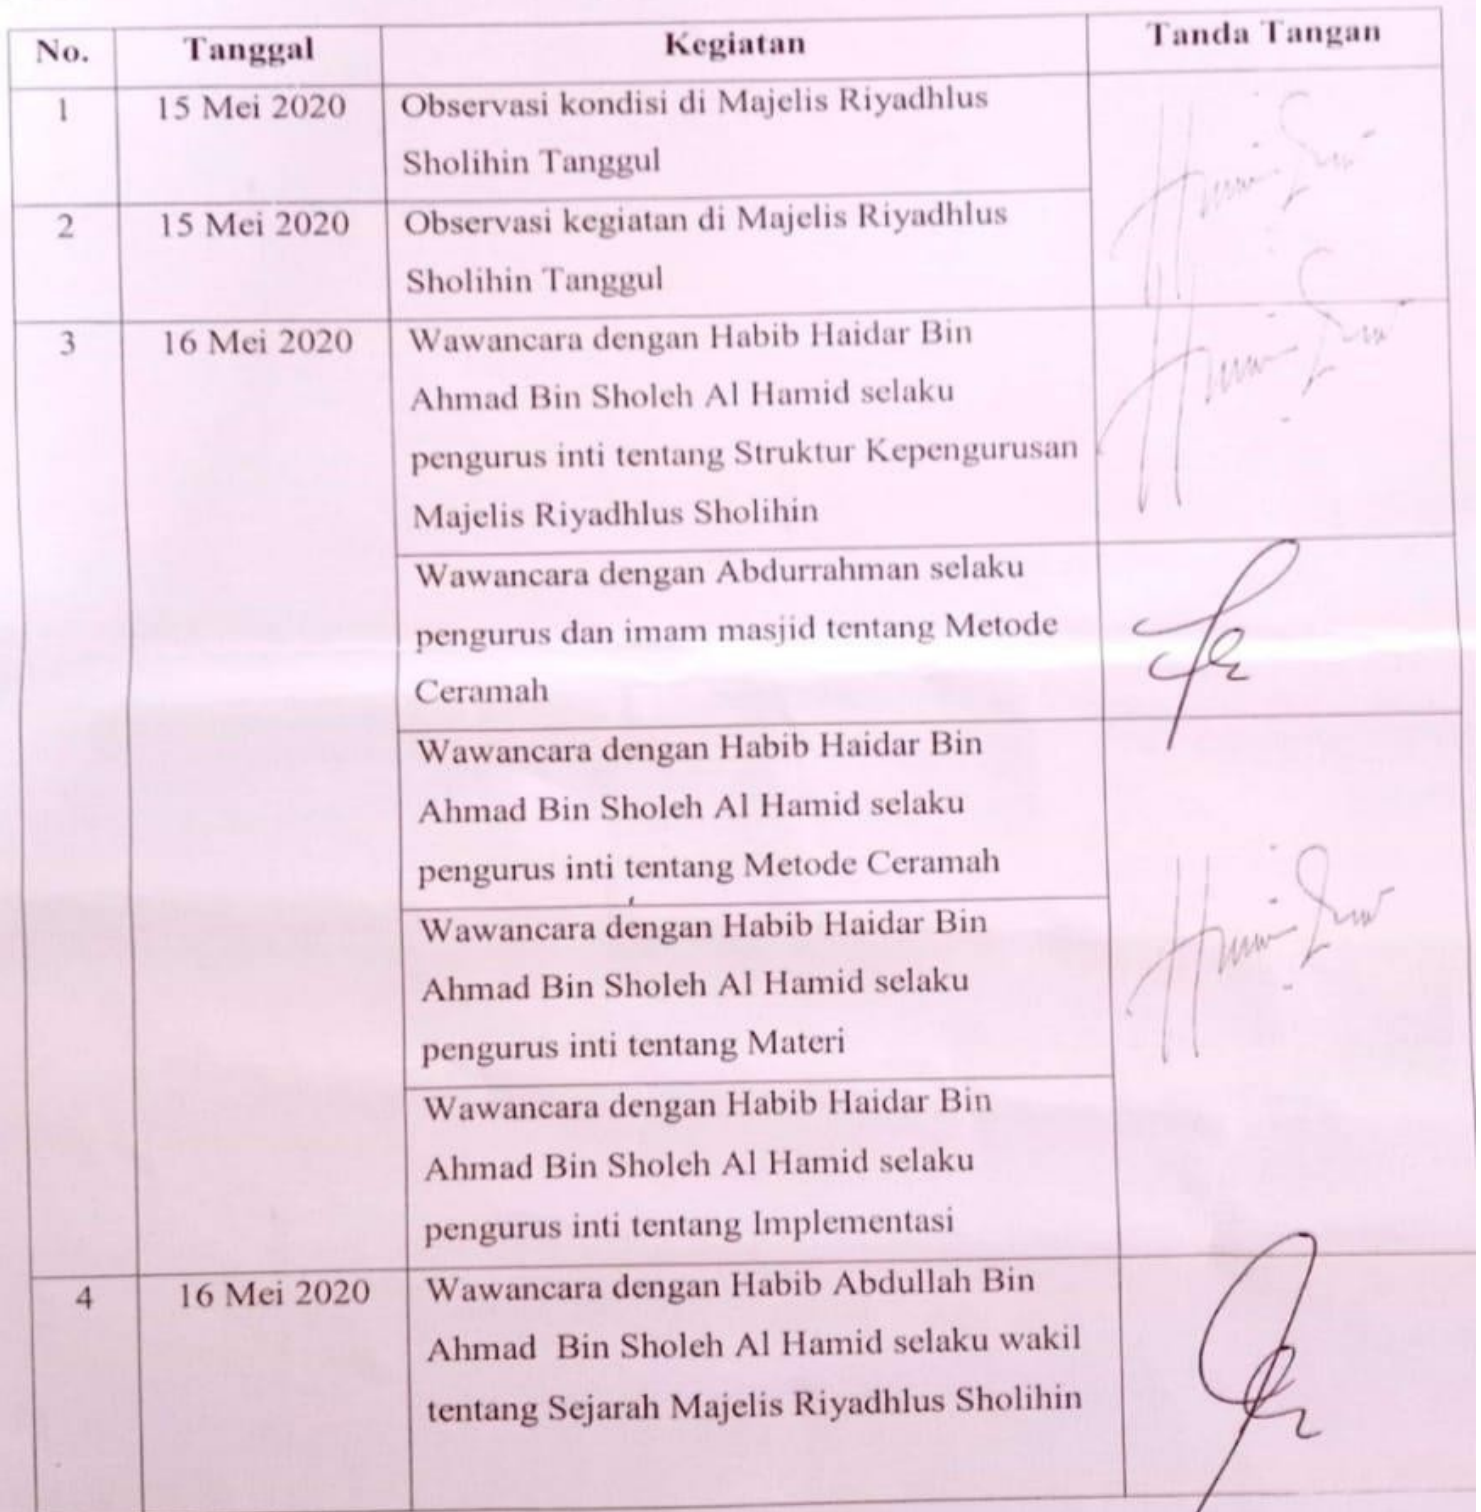 No. Tanggal Kegiatan Tanda Tangan
1 15 Mei 2020 Observasi kondisi di Majelis Riyadhlus
Sholihin Tanggul
2 15 Mei 2020 Observasi kegiatan di Majelis Riyadhlus
Sholihin Tanggul
3 16 Mei 2020 Wawancara dengan Habib Haidar Bin
Ahmad Bin Sholeh Al Hamid selaku
pengurus inti tentang Struktur Kepengurusan
Majelis Riyadhlus Sholihin
Wawancara dengan Abdurrahman selaku
pengurus dan imam masjid tentang Metode
Ceramah
Wawancara dengan Habib Haidar Bin
Ahmad Bin Sholeh Al Hamid selaku
pengurus inti tentang Metode Ceramah
Wawancara dengan Habib Haidar Bin
Ahmad Bin Sholeh Al Hamid selaku
pengurus inti tentang Materi
Wawancara dengan Habib Haidar Bin
Ahmad Bin Sholeh Al Hamid selaku
pengurus inti tentang Implementasi
4 16 Mei 2020 Wawancara dengan Habib Abdullah Bin
Ahmad Bin Sholeh Al Hamid selaku wakil
tentang Sejarah Majelis Riyadhlus Sholihin